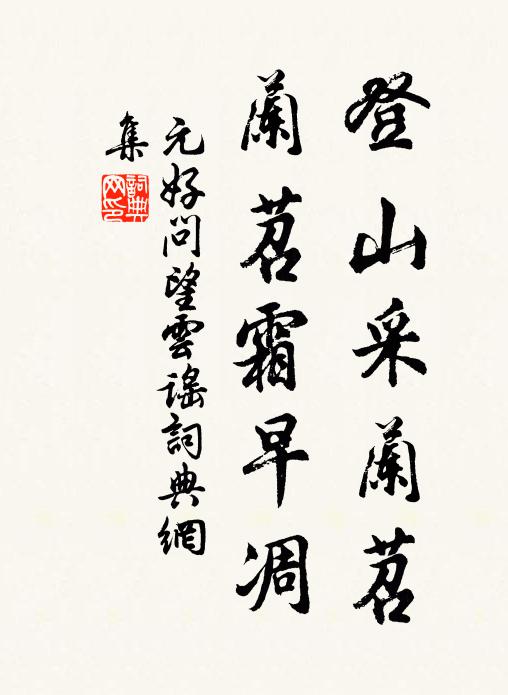 登山采蘭苕
蘭苕霜早凋
元好問望雲謠詞典網
集
詞典
网印